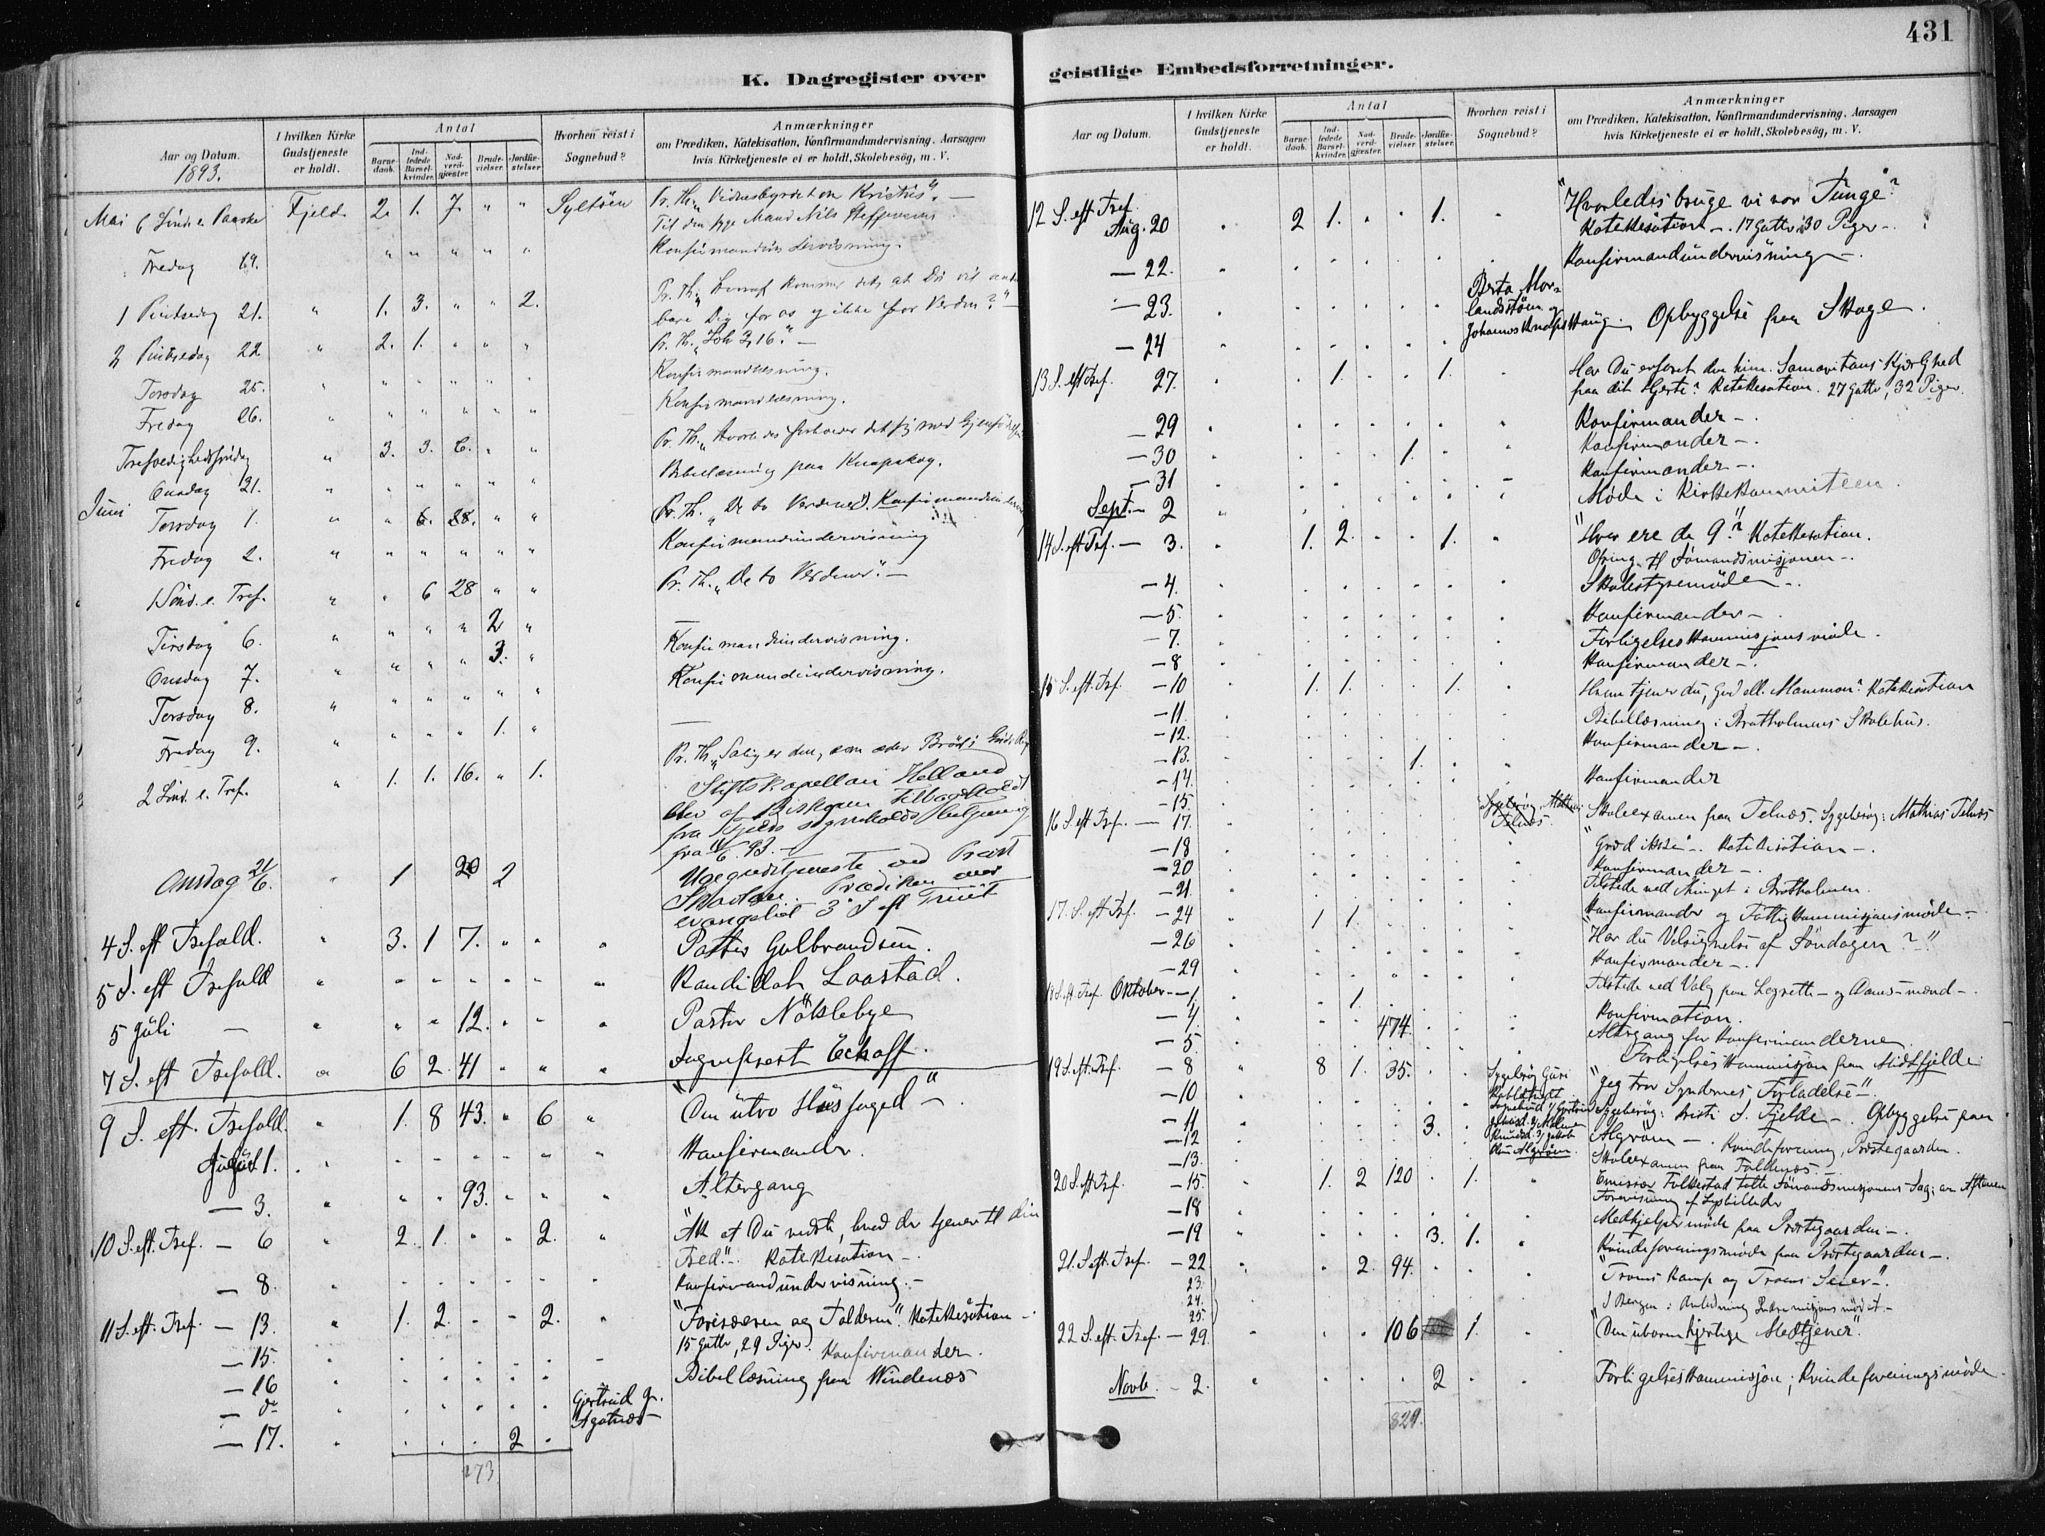 431
K. Dagregister over
geistlige Embedsforretninger.
Aar og Datum.
1893.
I hvilken Kirke Gudstjeneste er holdt.
Antal
Barnedaab.
Indledede Barselkvinder.
Nadverdgjæster.
Brudevielser.
Jordfæstelser
Hvorhen reist i Sognebud?
Anmærkninger
om Prædiken, Katekisation, Konfirmandundervisning, Aarsagen
hvis Kirketjeneste ei er holdt, Skolebesøg, m. V.
Mai 6 Sönd. e. Paaske Fjeld 2. 1. 7. " " Syltöen Pr. Th. „Vidnesbyrdet om Kristus". —
Til den syge Mand Nils
Fredag 19. " " " " " Konfirmandundervisning.
1 Pintsedag 21. " 1. 3. " " 2. Pr. Th. „Hvoraf kommer det, at Du vil
bare Dig for os og ikke for Verden?" —
2 Pintsedag 22 2. 1. " " " Pr. Th. „Joh 3,16." —
Torsdag 25. " " " " " " Konfirmandlæsning.
Fredag 26. " " " " " " Konfirmandlæsning.
Trefoldighedssöndag " 3. 3. 6. " " Pr. Th. „Hvorledes forholder det sig med
Onsdag 31. " " " " " " Bibellæsning paa Knapskog.
Juni Torsdag 1. " " 6. 28. " " Pr. Th. „De to Verdener". Konfirmandundervisning
Fredag 2. " " " " " " Konfirmandundervisning
1 Sönd. e. Tref. " " 6 28 " " Pr. Th. „De to Verdener". —
Tirsdag 6. " " " " 2 " —
Onsdag 7. " " " " 3. " Konfirmandundervisning.
Torsdag 8. " " " " " " Konfirmandundervisning.
Fredag 9. " " " " 1. " —
2 Sönd. e. Tref. " 1. 1. 16. " 1. Pr. Th. „Salig er den, som æder Bröd i Guds Rige
Stiftskapellan Helland
blev af Biskopen tilbageholdt
fra Fjelds sogneholds Betjening
fra 11/6. 93. —
Onsdag 21/6. " 1 20 2 Ugegudstjeneste ved Præst
Prædiken over
evangeliet 3' S eft Trinit
4 S. eft Trefold. " 3. 1 7. " " " Pastor Gulbrandsen.
5 S. eft Trefold " " " " " " " Kandidat Laastad.
5 Juli — " " " 12. " " " Pastor Nökleby
7 S. eft Trefold. " 6 2 41 " " " Sogneprest Eckoff.
9 S. eft. Trefold. " 1. 8 43. " 6 " "Den utro Husfoged" —.
August 1. " Konfirmander.
— 3. " " " 93. " " " Altergang
10 S. eft. Tref. — 6 " 2. 1. " " 2. " "Ak at Du vidste, hvad der tjener til din
Fred". — Katekisation —.
— 8. Konfirmandundervisning. —
11 S. eft. Tref. — 13. " 1. 2. - - 2. "Fariseeren og Tolderen". Katekisation —
15 Gutter, 29 Piger.
— 15. Konfirmander.
— 16 Bibellæsning paa Windenæs
— do Gjertrud G.
Agotnes —
— 17. 2
473
Aar og Datum.
I hvilken Kirke Gudstjeneste er holdt.
Antal
Barnedaab.
Indledede Barselkvinder.
Nadverdgjæster.
Brudevielser.
Jordfæstelser.
Hvorhen reist i Sognebud?
Anmærkninger
om Prædiken, Katekisation, Konfirmandundervisning, Aarsagen
hvis Kirketjeneste ei er holdt, Skolebesög, m. V.
12 S. eft Tref. Aug. 20 2 1. 1. "Hvorledes bruge vi vor Tunge"?
Katekisation —. 17 Gutter, 30 Piger —.
— 22. Konfirmandundervisning —.
— 23. Berta Morlandstöen og
Johannes Haug. Opbyggelse paa Skoge.
— 24
13 S. eft Tref. 27. 1. 1. Har Du erfaret den him. Samaritans Kjærlighed
paa dit Hjerte? Katekisation. 27 Gutter, 32 Piger.
— 29 Konfirmander —.
— 30 1. Konfirmander —.
— 31 Konfirmander —.
Sept. — 2 Møde i Kirkekommiteen.
14 S. eft Tref. — 3. 1. 2. 1. "Hvor ere de 9"? Katekisation.
Ofring til Sömandsmisjonen —.
— 4. Skolestyremöde —.
— 5. Konfirmander —
— 7. Forligelseskommisjonsmöde.
— 8 Konfirmander —.
15 S. eft. Tref. — 10 1. 1. 1. Hvem tjener du, Gud ell. Mammon? Katekisation
— 11. Bibellæsning i Bratholmens Skolehus.
— 12. Konfirmander —.
— 13. 1.
— 14. Konfirmander
— 15. Sygebesög, Mathias Telnæs. Skoleexamen paa Telnæs. Sygebesög: Mathias Telnæs
16 S. eft Tref. — 17. "Græd ikke". Katekisation —.
— 18 Konfirmander —.
— 20 Tilstede ved Thinget i Bratholmen.
— 21. Konfirmander og Fattigkommisjonsmöde —
17. S. eft Tref. — 24 1 1. "Har du Velsignelse af Söndagen?"
— 26 Konfirmander —.
— 29 Tilstede ved Valg paa Lagrette- og Domsmænd —.
18 S. eft Tref. Oktober — 1. 1. Konfirmation.
— 4. 474. Altergang for Konfirmanderne
— 5 Forligelseskommisjon paa Midtfjelde.
19 S. eft. Tref. — 8 8 1. 35. Sygebesög Guri "Jeg tror Syndernes Forladelse".
— 10 Sygebesög: S. Fjelde —. Opbyggelse paa
— 11 3. Algröen —. Kvindeforening, Præstegaarden.
— 12 Algröen.
— 13. Skoleexamen paa Foldnæs.
20 S. eft Tref. — 15. 1. 2 120 1. Emissær Folkestad talte Sömandsmisjonens Sag; om Aftenen
Forevisning af Lysbilleder
— 18 Medhjelpermöde paa Præstegaarden —.
— 19 3. 1. Kvindeforeningsmöde paa Præstegaarden —.
21. S. eft. Tref. — 22 2. 94. "Troens Kamp og Troens Seier".
23.
24.
25. I Bergen i Anledning Indremisjonsmödet —
22 S. eft. Tref. — 29. 106 1. "Den ubarmhjertige Medtjener".
Novb. — 2. 2 Forligelseskommisjon; Kvindeforeningsmöde.
829.